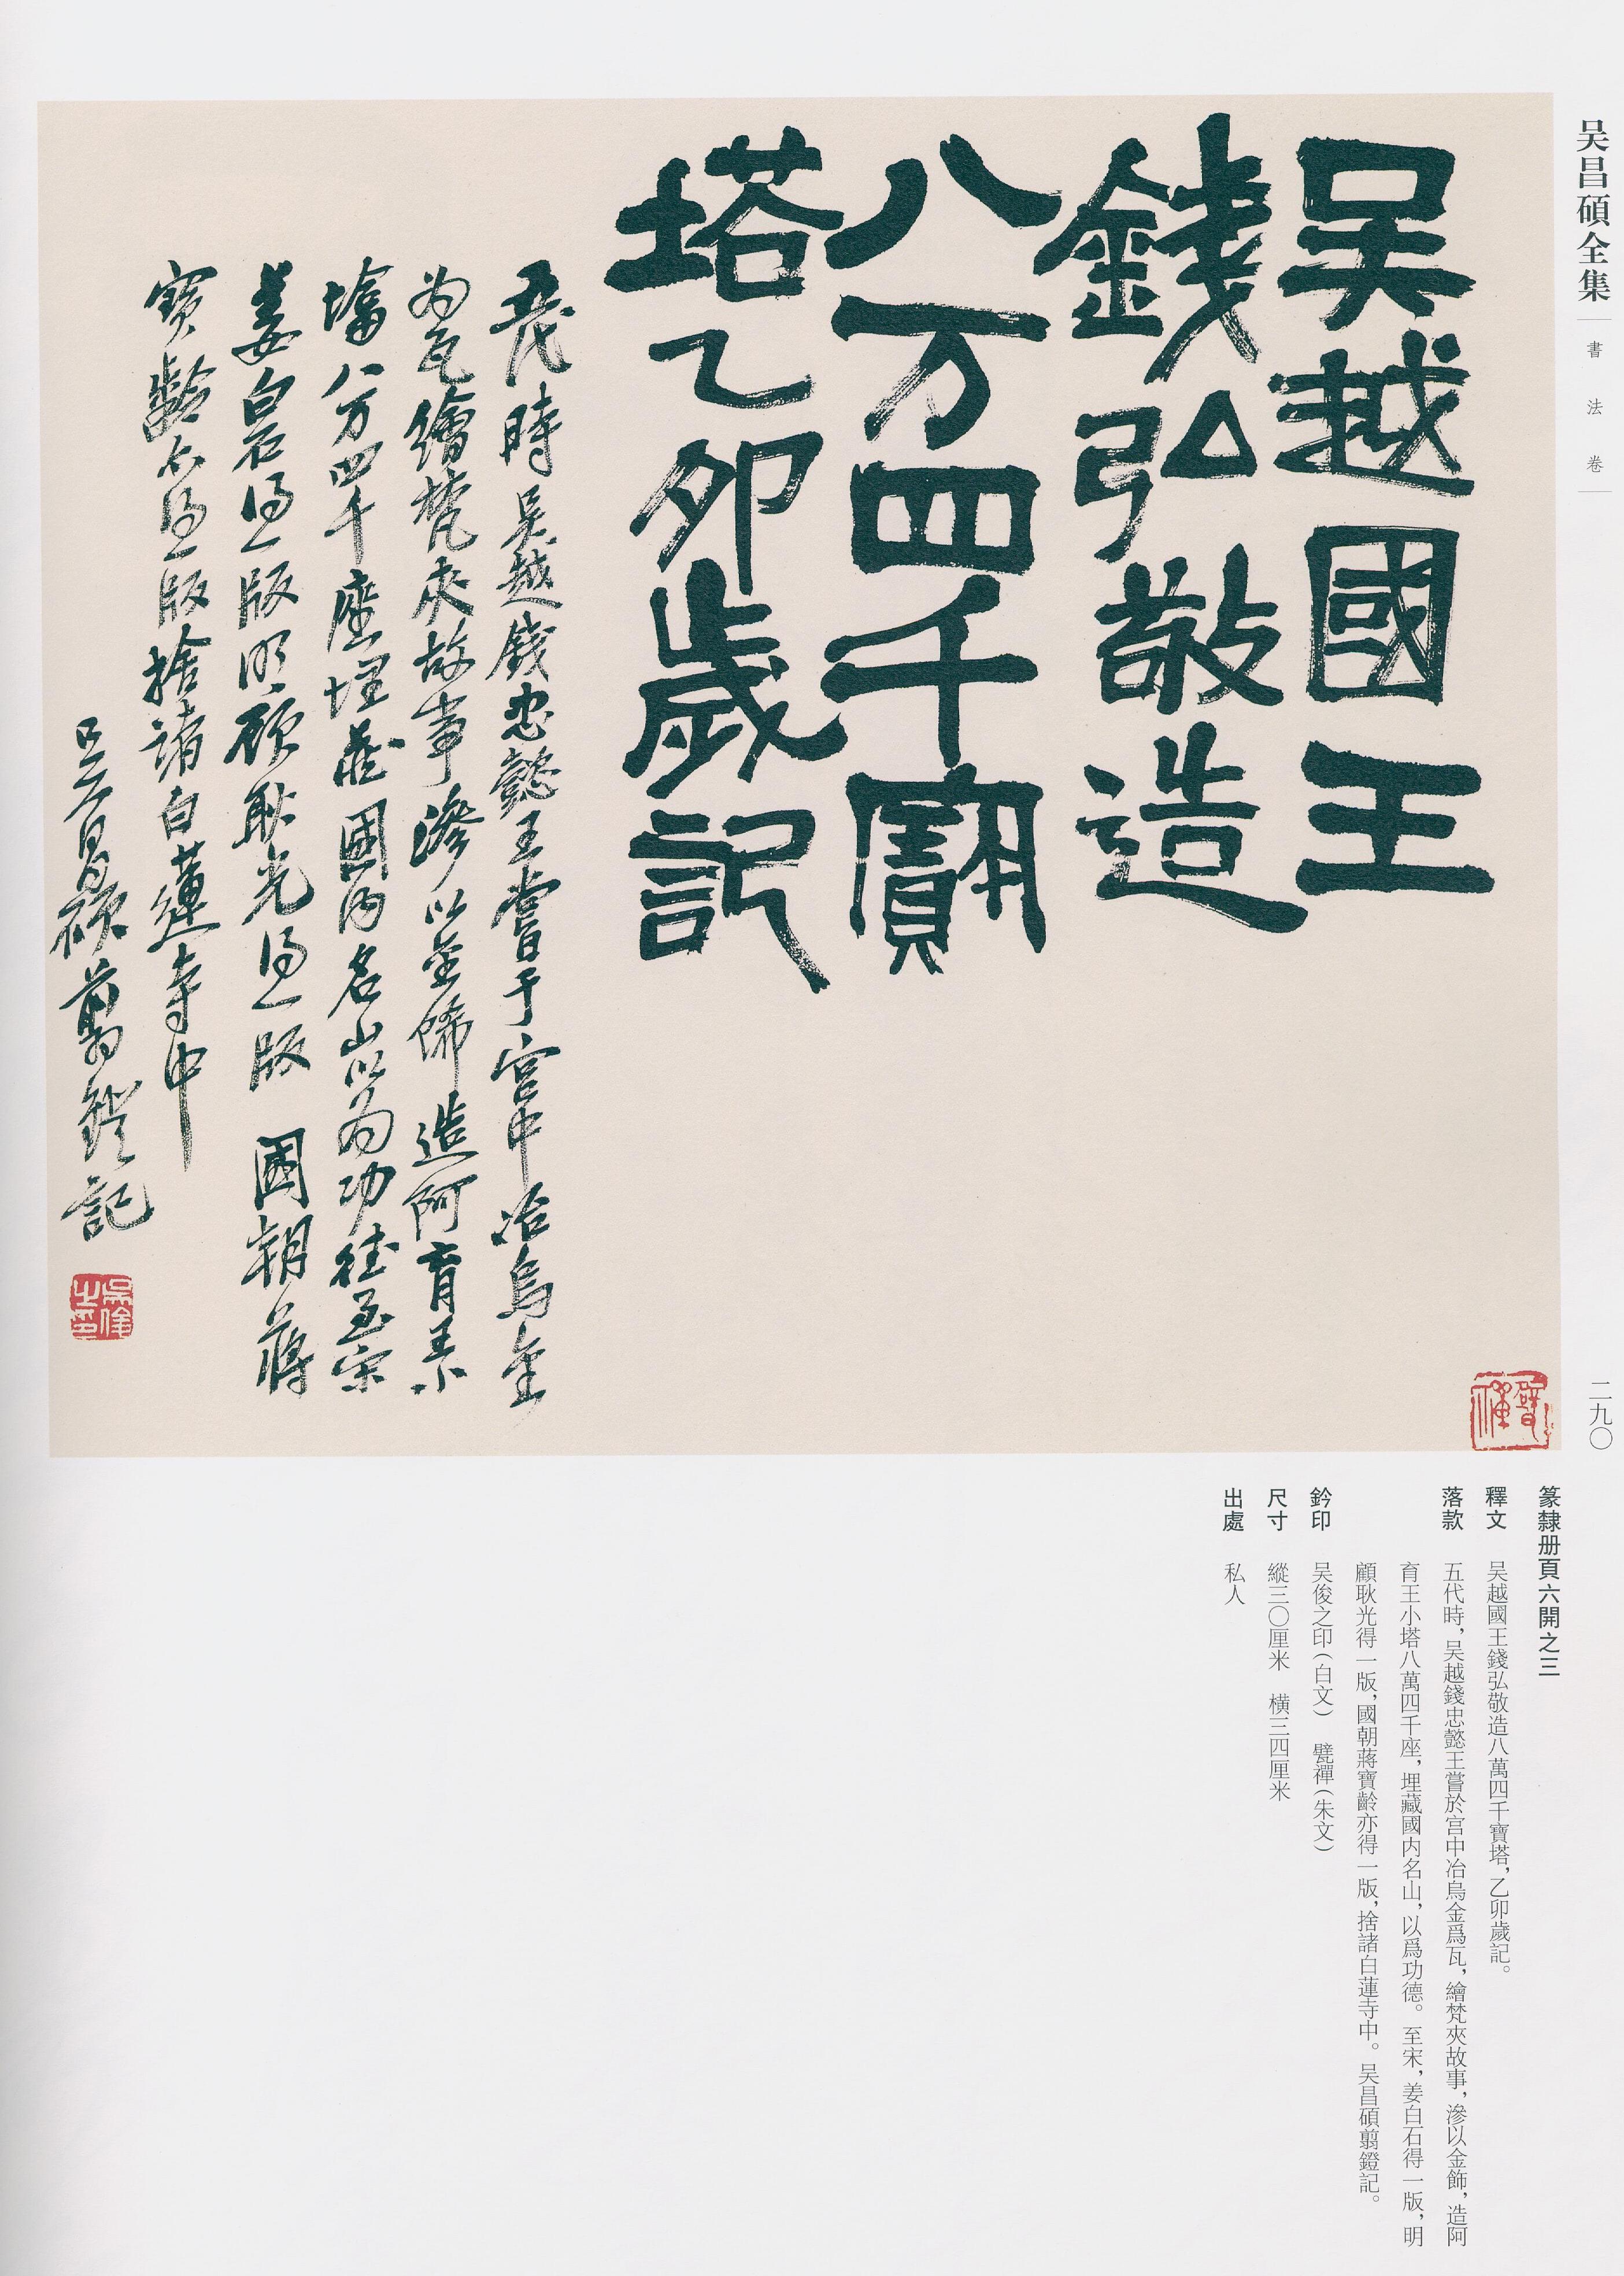 吴昌碩全集
書法卷
二九〇
吴越國王
錢弘敬造
八万四千寶
塔乙卯歲記
五代時吴越錢忠懿王嘗于宫中冶烏金
为瓦繪梵夾故事滲以金飾造阿育王小
塔八万四千座埋藏國内名山以为功德至宋
姜白石得一版明顧耿光得一版國朝蔣
寶齡亦得一版捨諸白蓮寺中
吴昌碩翦鐙記
吴俊之印
甓禪
篆隸册頁六開之三
釋文 吴越國王錢弘敬造八萬四千寶塔，乙卯歲記。
落款 五代時，吴越錢忠懿王嘗於宫中冶烏金爲瓦，繪梵夾故事，滲以金飾，造阿
育王小塔八萬四千座，埋藏國内名山，以爲功德。至宋，姜白石得一版，明
顧耿光得一版，國朝蔣寶齡亦得一版，捨諸白蓮寺中。吴昌碩翦鐙記。
鈐印 吴俊之印（白文） 甓禪（朱文）
尺寸 縱三〇厘米 橫三四厘米
出處 私人